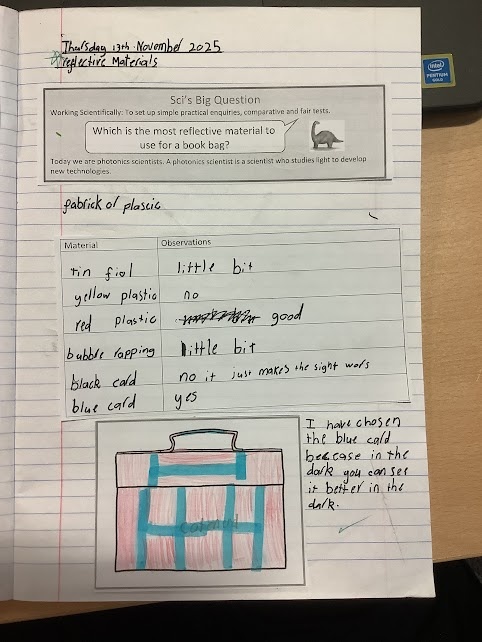 Thursday 13th November 2025
reflective Materials
Sci's Big Question
Working Scientifically: To set up simple practical enquiries, comparative and fair tests.
Which is the most reflective material to
use for a book bag?
Today we are photonics scientists. A photonics scientist is a scientist who studies light to develop
new technologies.
fabrick or plascic
Material Observations
tin fiol little bit
yellow plastic no
red plastic good
bubble rapping little bit
black card no it just makes the sight wors
blue card yes
I have chosen
the blue card
because in the
dark you can see
it better in the
dark.
intel
PENTIUM
GOLD